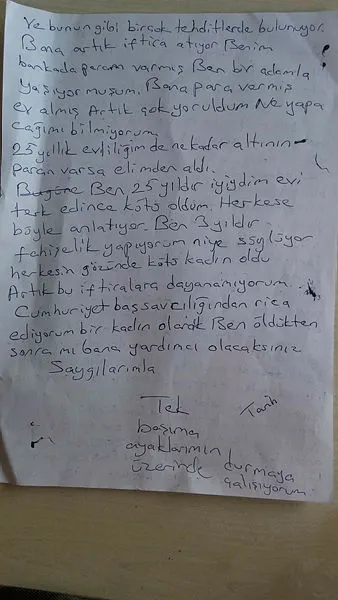 Ve bunun gibi birçok tehditlerde bulunuyor.
Bana artık iftira atıyor Benim
bankada param varmış Ben bir adamla
yaşıyor muşum. Bana para vermiş
ev almış Artık çok yoruldum Ne yapa
cağımı bilmiyorum
25 yıllık evliliğimde nekadar altının
paran varsa elimden aldı.
Bugüne Ben 25 yıldır iyiydim evi
terk edince kötü oldum. Herkese
böyle anlatıyor. Ben 3 yıldır
fehişelik yapıyorum niye söylüyor
herkesin gözünde kötü kadın oldu
Artık bu iftiralara dayanamıyorum...
Cumhuriyet başsavcılığından rica
ediyorum bir kadın olarak Ben öldükten
sonra mı bana yardımcı olacaksınız
Saygılarımla
Tek Tarih
başıma
ayaklarımın
üzerinde durmaya
çalışıyorum